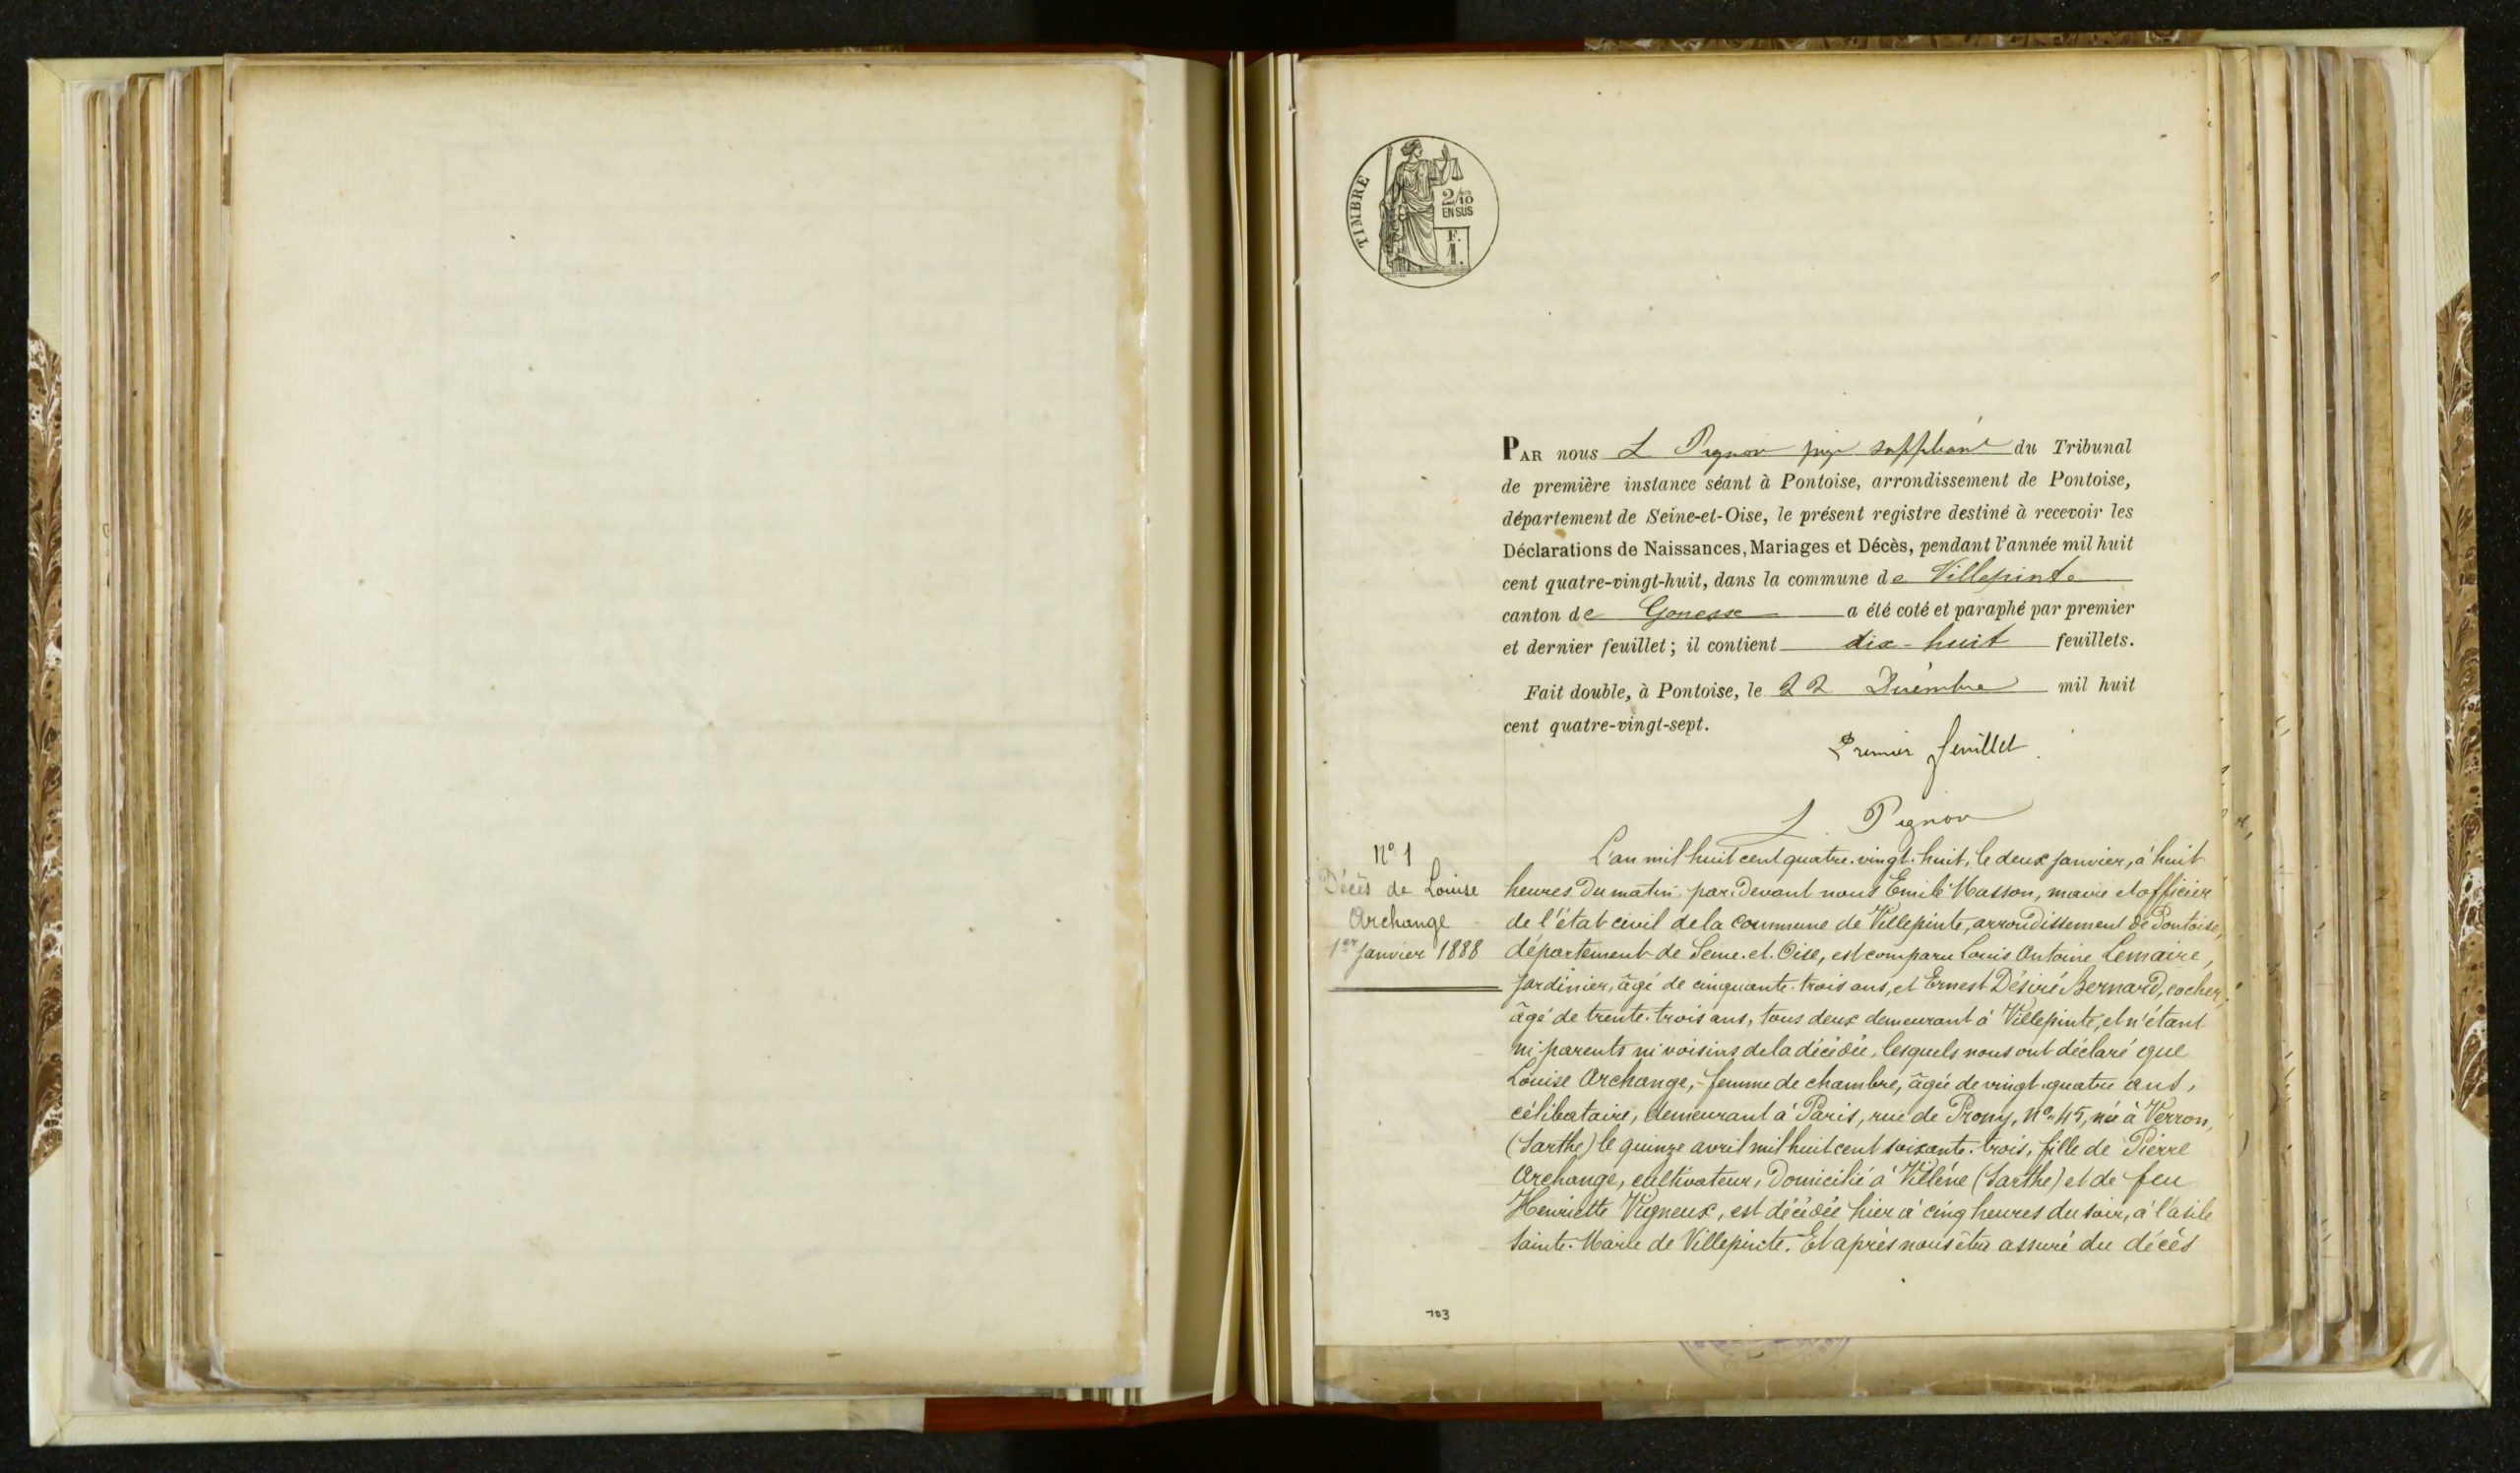 TIMBRE
2/10
EN SUS
F.
1.
PAR nous L Pignon juge suppléant du Tribunal
de première instance séant à Pontoise, arrondissement de Pontoise,
département de Seine-et-Oise, le présent registre destiné à recevoir les
Déclarations de Naissances, Mariages et Décès, pendant l'année mil huit
cent quatre-vingt-huit, dans la commune de Villepinte
canton de Gonesse a été coté et paraphé par premier
et dernier feuillet; il contient dix-huit feuillets.
Fait double, à Pontoise, le 22 Décembre mil huit
cent quatre-vingt-sept.
Premier feuillet.
L. Pignon
N° 1
Décès de Louise
Archange
1er Janvier 1888
L'an mil huit cent quatre-vingt-huit, le deux janvier, à huit
heures du matin, par-devant nous Emile Masson, maire et officier
de l'état civil de la commune de Villepinte, arrondissement de Pontoise,
département de Seine-et-Oise, est comparu Louis Antoine Lemaire,
jardinier, âgé de cinquante-trois ans, et Ernest Désiré Bernard, cocher,
âgé de trente-trois ans, tous deux demeurant à Villepinte, et n'étant
ni parents ni voisins de la décédée, lesquels nous ont déclaré que
Louise Archange, femme de chambre, âgée de vingt-quatre ans,
célibataire, demeurant à Paris, rue de Prony, N° 45, née à Verron,
(Sarthe) le quinze avril mil huit cent soixante-trois, fille de Pierre
Archange, cultivateur, domicilié à Vilène (Sarthe) et de feu
Henriette Vigneux, est décédée hier à cinq heures du soir, à l'asile
Sainte-Marie de Villepinte. Et après nous être assuré du décès
103